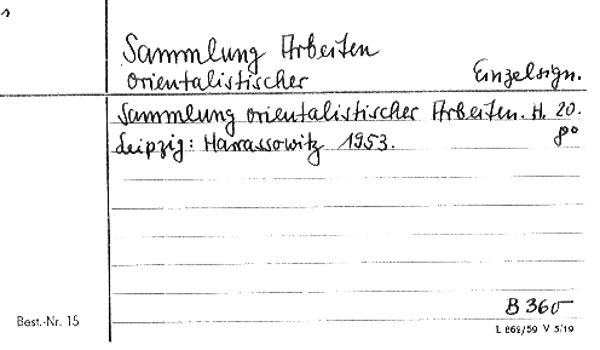 Sammlung Arbeiten
orientalistischer Einzelsign.
Sammlung orientalistischer Arbeiten. H. 20.
Leipzig: Harrassowitz 1953. 8°
B 360
Best.-Nr. 15
L 862/59 V 5/19